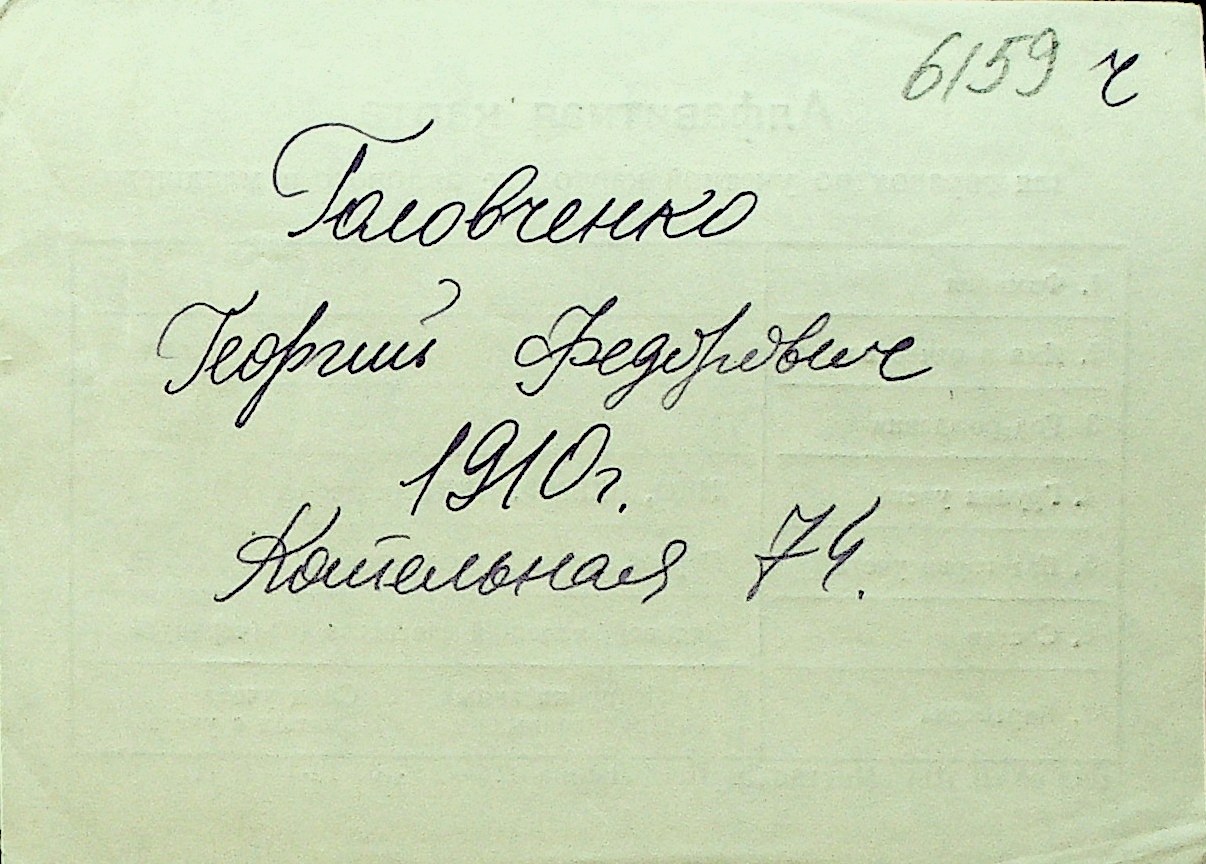 6159 ч
Головченко
Георгий Федорович
1910г.
Котельная 74.